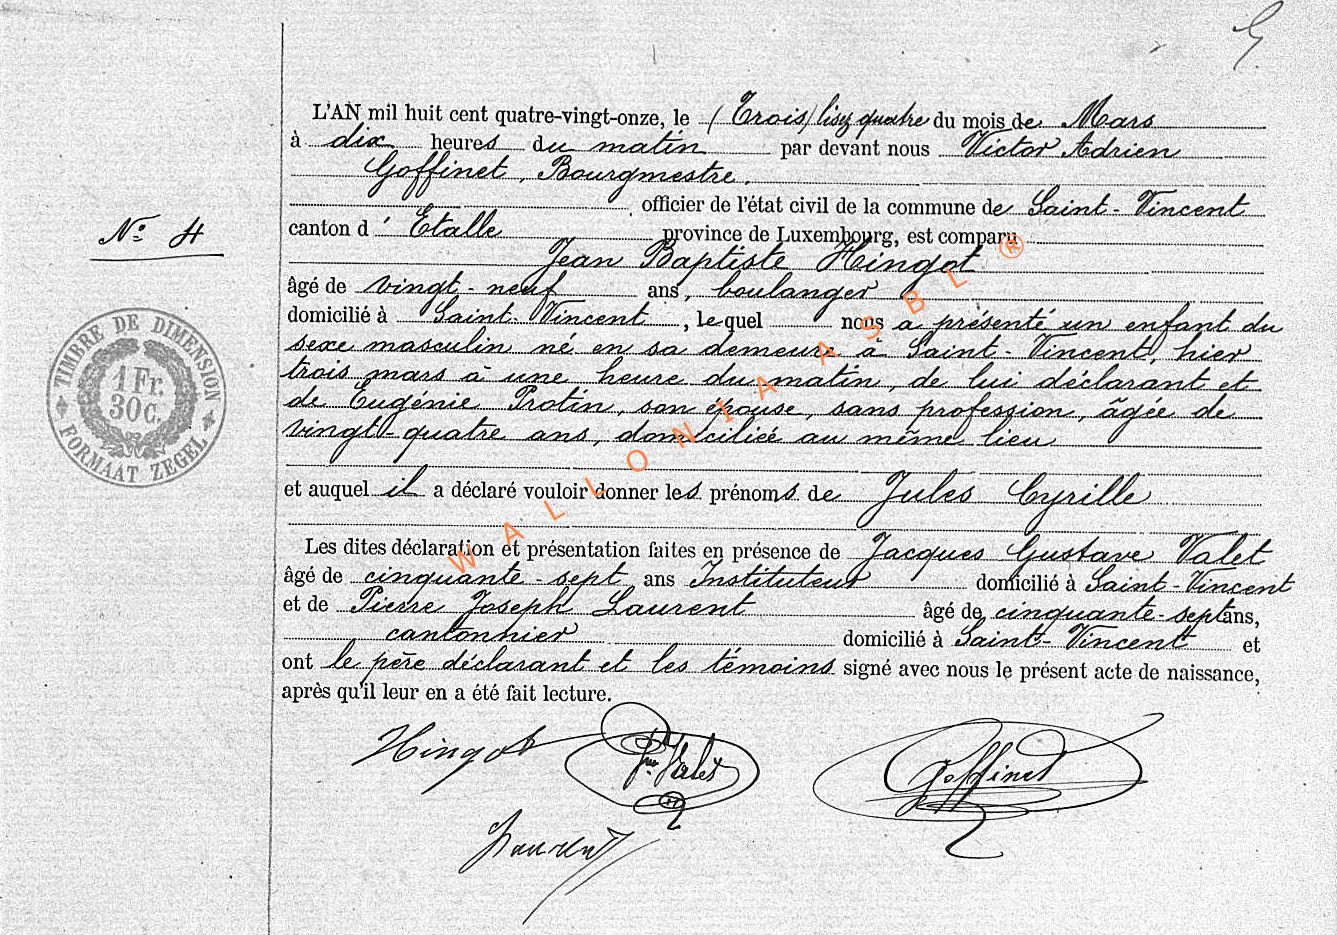 L'AN mil huit cent quatre-vingt-onze, le (Trois) lisez quatre du mois de Mars
à dix heures du matin par devant nous Victor Adrien
Goffinet, Bourgmestre,
officier de l'état civil de la commune de Saint-Vincent
canton d' Etalle province de Luxembourg, est comparu
Jean Baptiste Hingot
âgé de vingt-neuf ans, boulanger
domicilié à Saint-Vincent, lequel nous a présenté un enfant du
sexe masculin né en sa demeure à Saint-Vincent, hier
trois mars à une heure du matin, de lui déclarant et
de Eugénie Protin, son épouse, sans profession, âgée de
vingt-quatre ans, domiciliée au même lieu
et auquel il a déclaré vouloir donner les prénoms de Jules Cyrille
Les dites déclaration et présentation faites en présence de Jacques Gustave Valet
âgé de cinquante-sept ans Instituteur domicilié à Saint-Vincent
et de Pierre Joseph Laurent âgé de cinquante-sept ans,
cantonnier domicilié à Saint-Vincent et
ont le père déclarant et les témoins signé avec nous le présent acte de naissance,
après qu'il leur en a été fait lecture.
Hingot Valet Goffinet
Laurent
No 4
TIMBRE DE DIMENSION
1 Fr.
30 C.
FORMAAT ZEGEL
WALLONIA ASBL ®